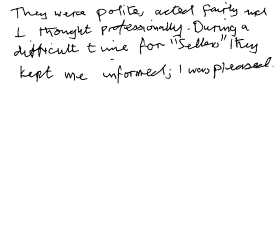 They were polite, acted fairly and
I thought professionally. During a
difficult time for "Sellers" they
kept me informed; I was pleased.